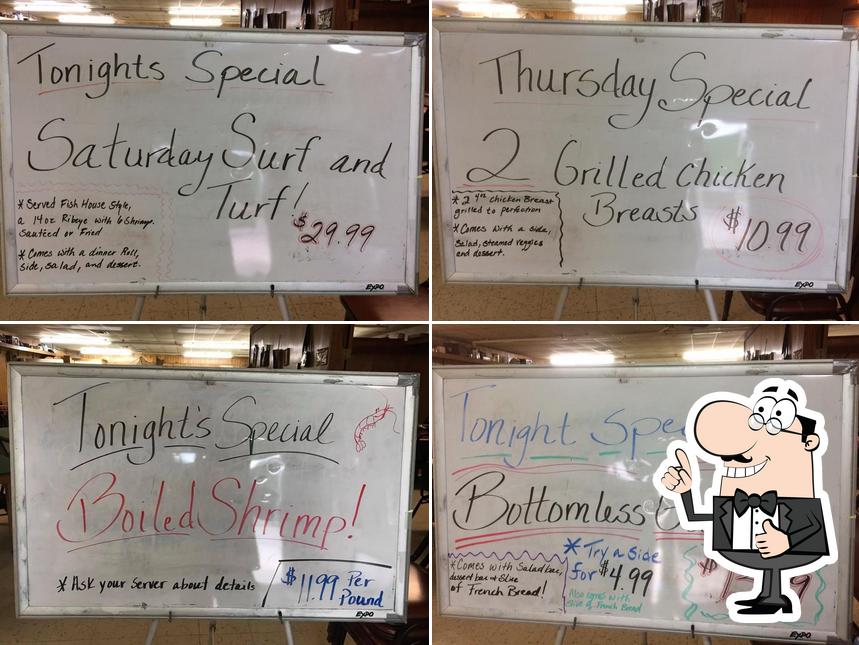 Tonights Special
Saturday Surf and
Turf!
* Served Fish House Style,
a 14oz Ribeye with 6 Shrimp.
Sautéed or Fried
* Comes with a dinner Roll,
side, salad, and dessert.
$29.99
EXPO
Thursday Special
2 Grilled Chicken
Breasts
* 2 4oz Chicken Breast
grilled to perfection
* Comes with a side,
Salad, steamed veggies
and dessert.
$10.99
EXPO
Tonight's Special
Boiled Shrimp!
* Ask your Server about details
$11.99 Per
Pound
EXPO
Tonight Spe
Bottomless
* Comes with Salad bar,
dessert bar & Slice
of French Bread!
* Try a Side
for $4.99
Also comes with
Slice of French Bread
EXPO